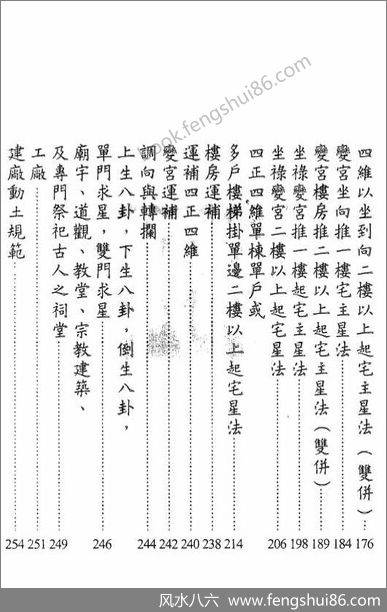 四維以坐到向二樓以上起宅主星法（雙併）…176
變宮坐向推一樓宅主星法…184
變宮樓房推二樓以上起宅主星法（雙併）…189
坐祿變宮推一樓起宅主星法…198
坐祿變宮二樓以上起宅星法…206
四正四維單棟單戶或
多戶樓梯掛單邊二樓以上起宅星法…214
樓房運補…238
運補四正四維…240
變宮運補…242
調向與轉攔…244
上生八卦，下生八卦，倒生八卦，
單門求星，雙門求星…246
廟宇、道觀、教堂、宗教建築、
及專門祭祀古人之祠堂…249
工廠…251
建廠動土規範…254
book.fengshui86.com
风水八六 - www.fengshui86.com